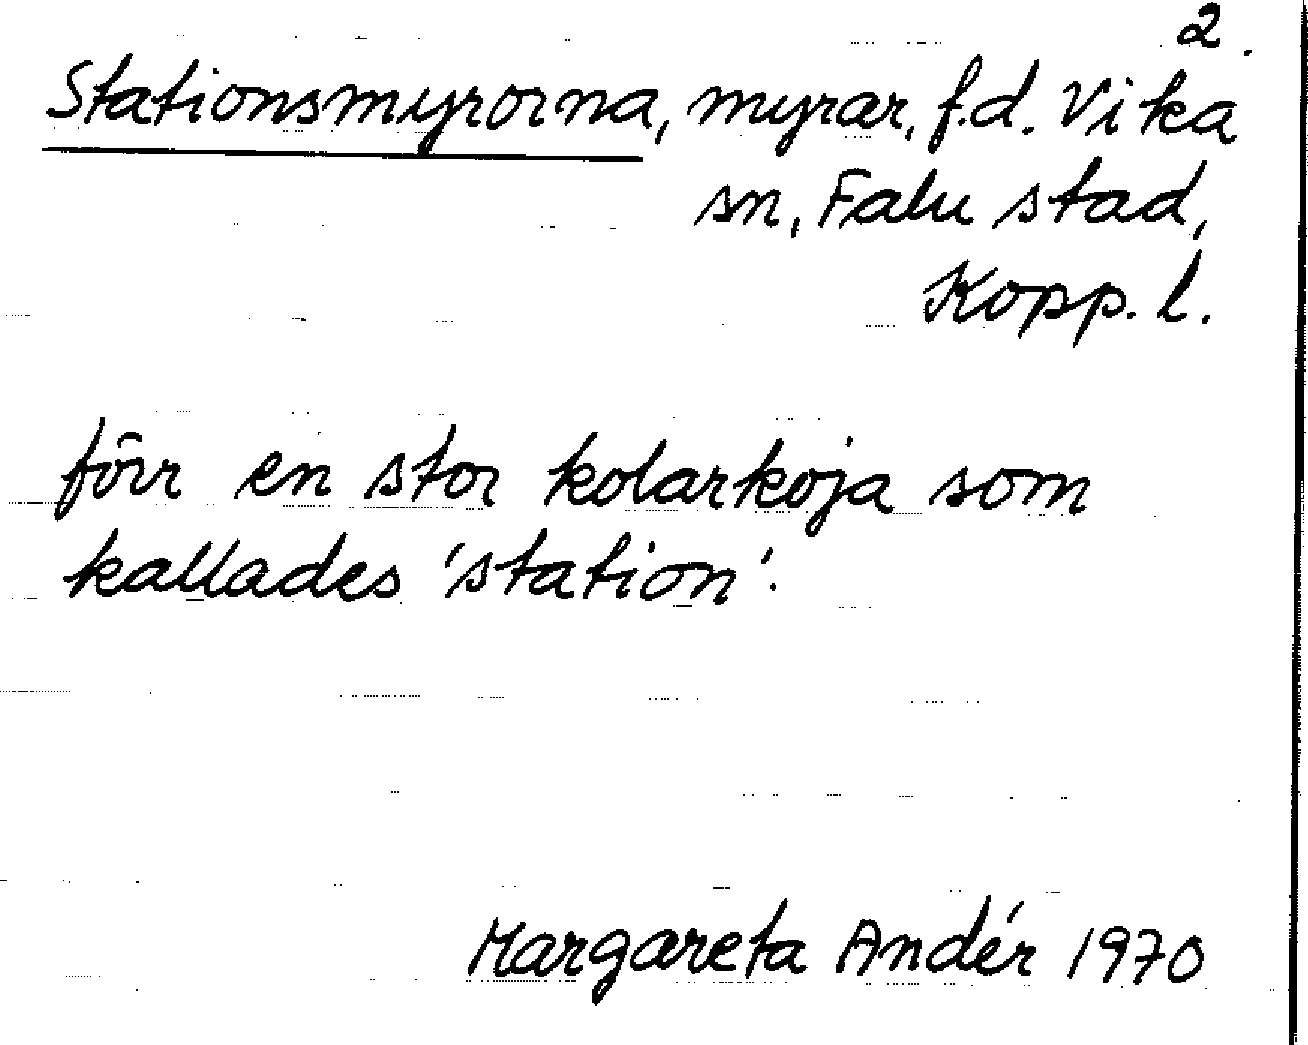 2.
Stationsmyrorna, myrar, f.d. Vika
sn, Falu stad,
Kopp. l.
förr en stor kolarkoja som
kallades 'station'.
Margareta Andér 1970